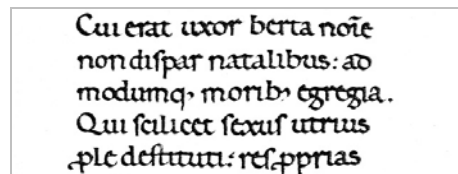 Cui erat uxor berta noīe
non diſpar natalibus: ad
modumq, morib, egregia.
Qui ſcilicet ſexuſ utrius
ꝓle deſtituti: reſ ꝓprias